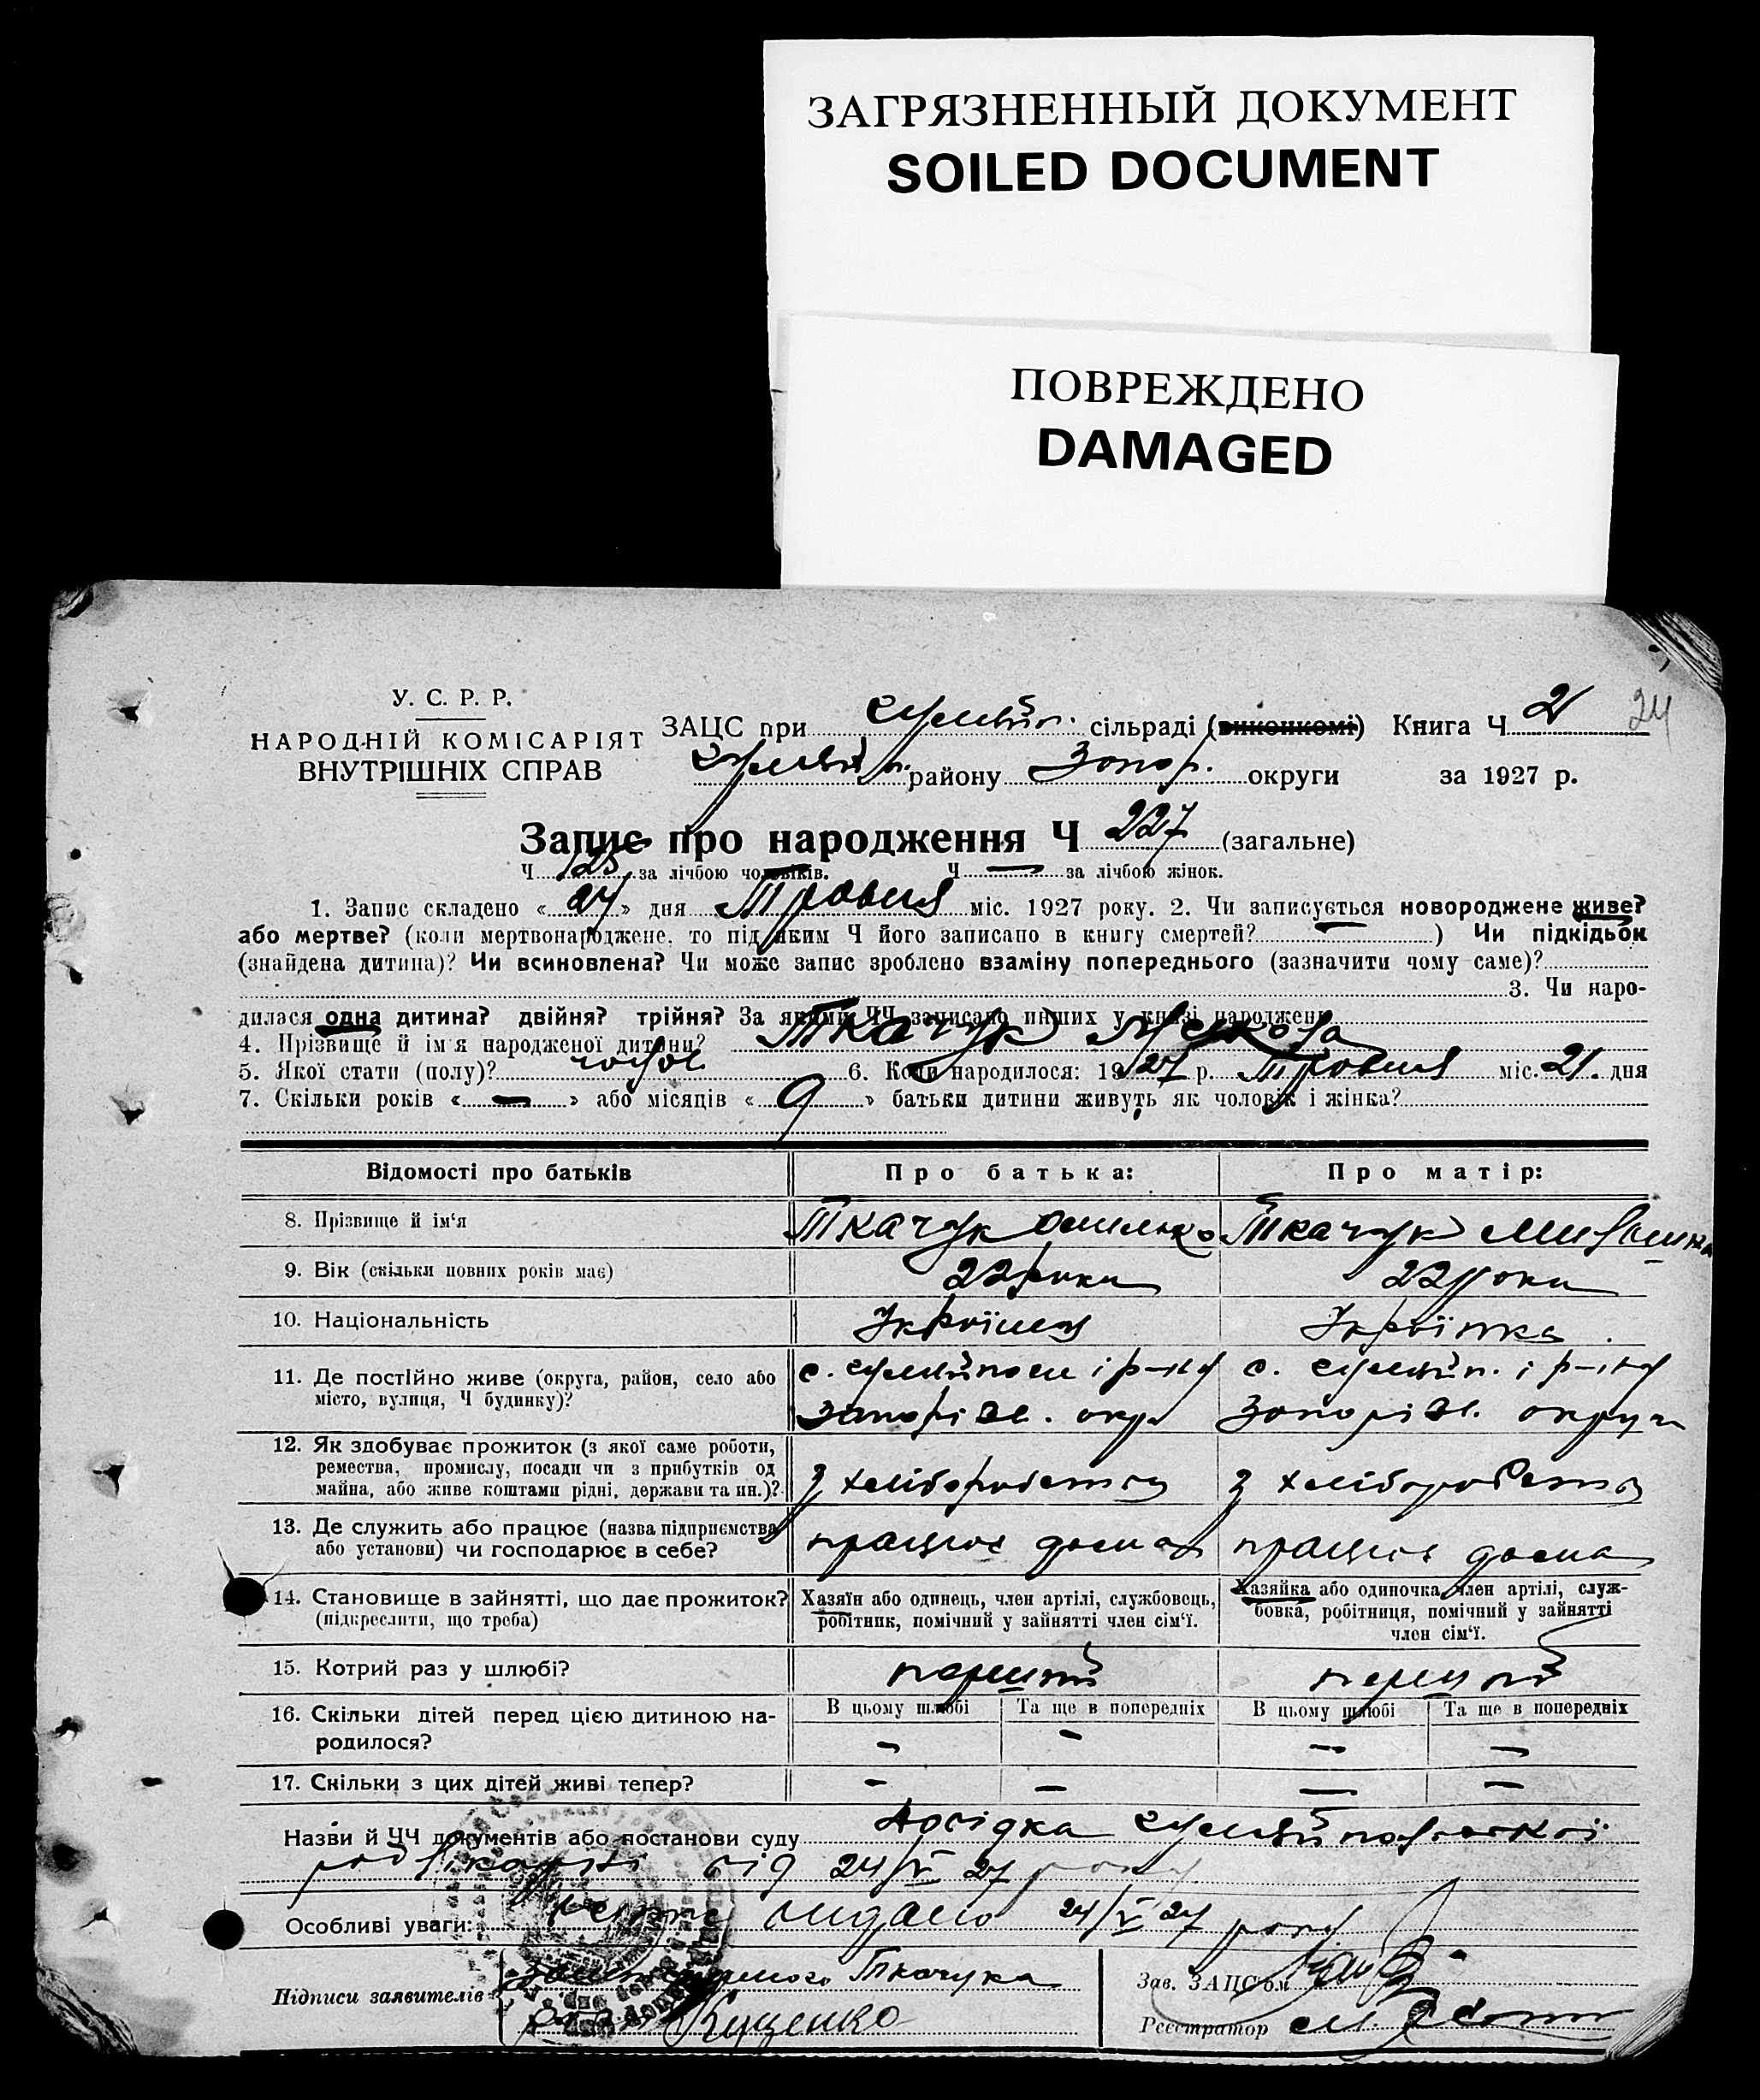 ЗАГРЯЗНЕННЫЙ ДОКУМЕНТ
SOILED DOCUMENT
ПОВРЕЖДЕНО
DAMAGED
У. С. Р. Р.
НАРОДНІЙ КОМІСАРІЯТ
ВНУТРІШНІХ СПРАВ
ЗАЦС при Гуляйп. сільраді (виконкомі) Книга Ч 2 24
Гуляйп. району Запор. округи за 1927 р.
Запис про народження Ч 227 (загальне)
Ч 125 за лічбою чоловіків. Ч — за лічбою жінок.
1. Запис складено « 24 » дня Травня міс. 1927 року. 2. Чи записується новороджене живе?
або мертве? (коли мертвонароджене, то під яким Ч його записано в книгу смертей? — ) Чи підкідьок
(знайдена дитина)? Чи всиновлена? Чи може запис зроблено взаміну попереднього (зазначити чому саме)?
3. Чи наро-
дилася одна дитина? двійня? трійня? За якими ЧЧ записано инших у книзі народжень
4. Прізвище й ім'я народженої дитини? Ткачук
5. Якої стати (полу)? чолов 6. Коли народилося: 1927 р. Травня міс. 21. дня
7. Скільки років « — » або місяців « 9 » батьки дитини живуть як чоловік і жінка?
Відомості про батьків Про батька: Про матір:
8. Прізвище й ім'я Ткачук Омелько Ткачук
9. Вік (скільки повних років має) 22 роки 22 роки
10. Національність Українец Українка
11. Де постійно живе (округа, район, село або с. Гуляйполе і р-ну с. Гуляйп. і р-ну
місто, вулиця, Ч будинку)? Запоріз. окр. Запоріз. округи
12. Як здобуває прожиток (з якої саме роботи,
ремества, промислу, посади чи з прибутків од
майна, або живе коштами рідні, держави та ин.)? З хліборобства З хліборобства
13. Де служить або працює (назва підприємства
або установи) чи господарює в себе? працює дома працює дома
14. Становище в зайнятті, що дає прожиток? Хазяїн або одинець, член артілі, службовець, Хазяйка або одиночка, член артілі, служ-
(підкреслити, що треба) робітник, помічний у зайнятті член сім'ї. бовка, робітниця, помічний у зайнятті
член сім'ї.
15. Котрий раз у шлюбі? перший перший
16. Скільки дітей перед цією дитиною на- В цьому шлюбі Та ще в попередніх В цьому шлюбі Та ще в попередніх
родилося? — — — —
17. Скільки з цих дітей живі тепер? — — — —
Назви й ЧЧ документів або постанови суду Довідка Гуляйпольської
рай лікарні від 24/V 27 року
Особливі уваги: видано 24/V 27 року
Підписи заявителів Ткачука
Куценко
Зав. ЗАЦС'ом
Реєстратор